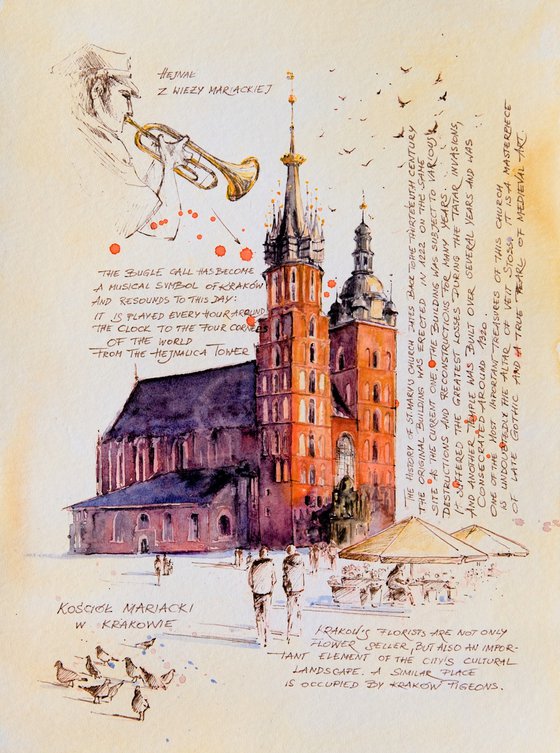 HEJNAŁ
Z WIEŻY MARIACKIEJ
THE BUGLE CALL HAS BECOME
A MUSICAL SYMBOL OF KRAKÓW
AND RESOUNDS TO THIS DAY:
IT IS PLAYED EVERY HOUR AROUND
THE CLOCK TO THE FOUR CORNERS
OF THE WORLD
FROM THE HEJNALICA TOWER
THE HISTORY OF ST. MARY'S CHURCH DATES BACK TO THE THIRTEENTH CENTURY
THE ORIGINAL BUILDING WAS ERECTED IN 1222 ON THE SAME
SITE AS THE CURRENT ONE. THE BUILDING WAS SUBJECT TO VARIOUS
DESTRUCTIONS AND RECONSTRUCTIONS FOR MANY YEARS
IT SUFFERED THE GREATEST LOSSES DURING THE TATAR INVASIONS,
AND ANOTHER TEMPLE WAS BUILT OVER SEVERAL YEARS AND WAS
CONSECRATED AROUND 1320.
ONE OF THE MOST IMPORTANT TREASURES OF THIS CHURCH
IS UNDOUBTEDLY THE ALTAR OF VEIT STOSS. IT IS A MASTERPIECE
OF LATE GOTHIC AND A TRUE PEARL OF MEDIEVAL ART.
KOŚCIÓŁ MARIACKI
W KRAKOWIE
KRAKOW'S FLORISTS ARE NOT ONLY
FLOWER SELLER, BUT ALSO AN IMPOR-
TANT ELEMENT OF THE CITY'S CULTURAL
LANDSCAPE. A SIMILAR PLACE
IS OCCUPIED BY KRAKÓW PIGEONS.